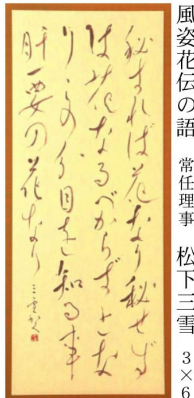 風姿花伝の語　常任理事　松下三雪　3×6
秘すれば花なり秘せず
は花なるべからずとな
りこの分目を知る事
肝要の花なり
三雪かく